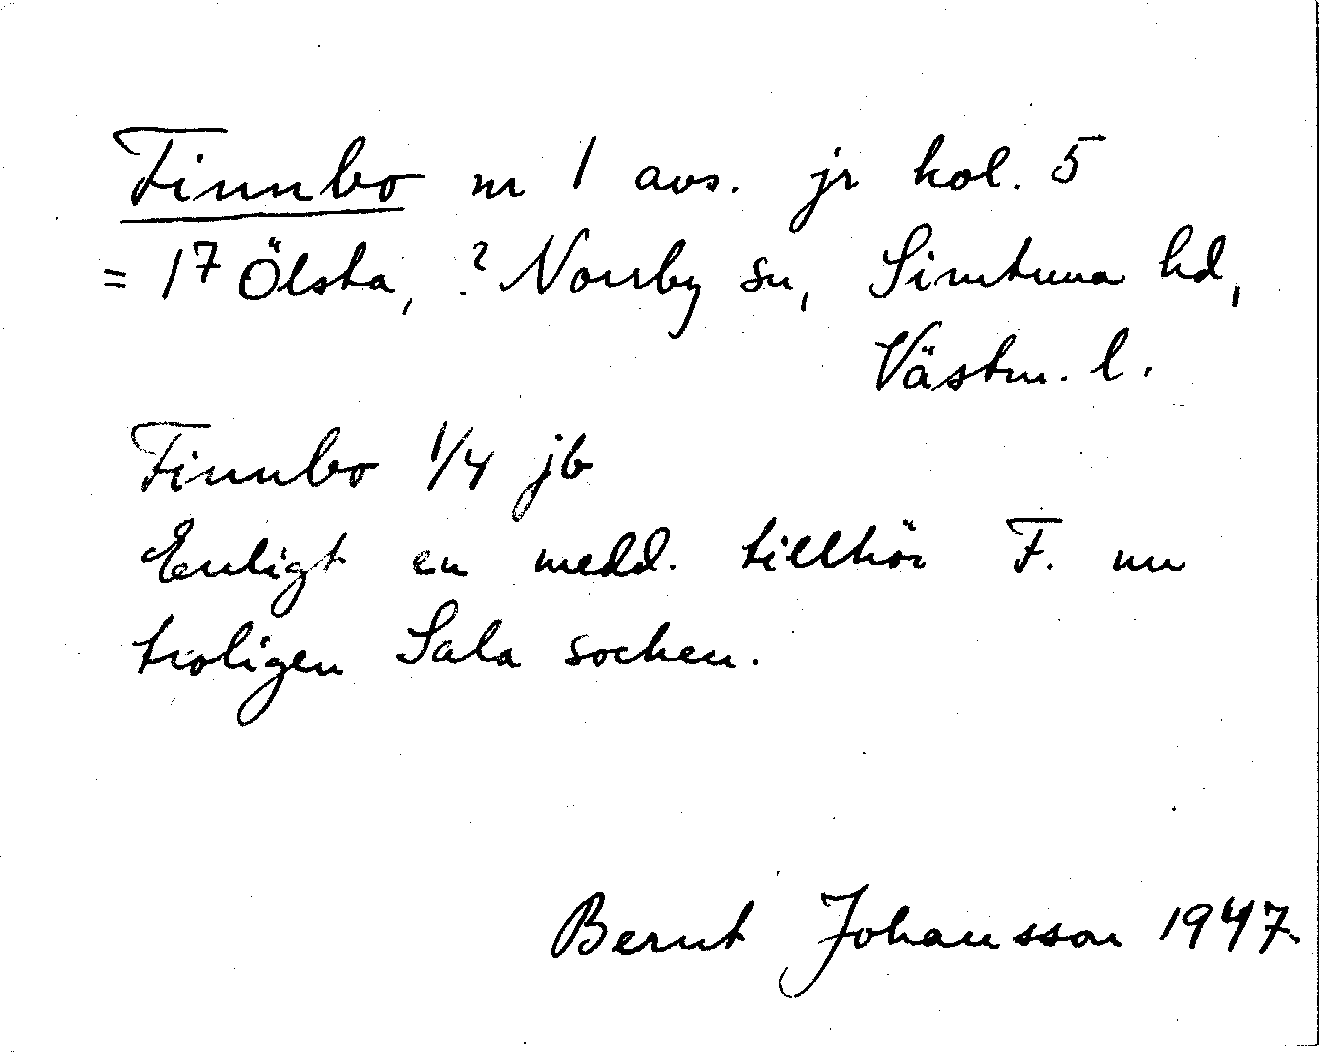 Finnbo nr 1 avs. jr kol. 5
= 17 Ölsta, ? Norrby sn, Simtuna hd,
Västm. l.
Finnbo 1/4 jb
Enligt en medd. tillhör F. nu
troligen Sala socken.
Bernt Johansson 1947.